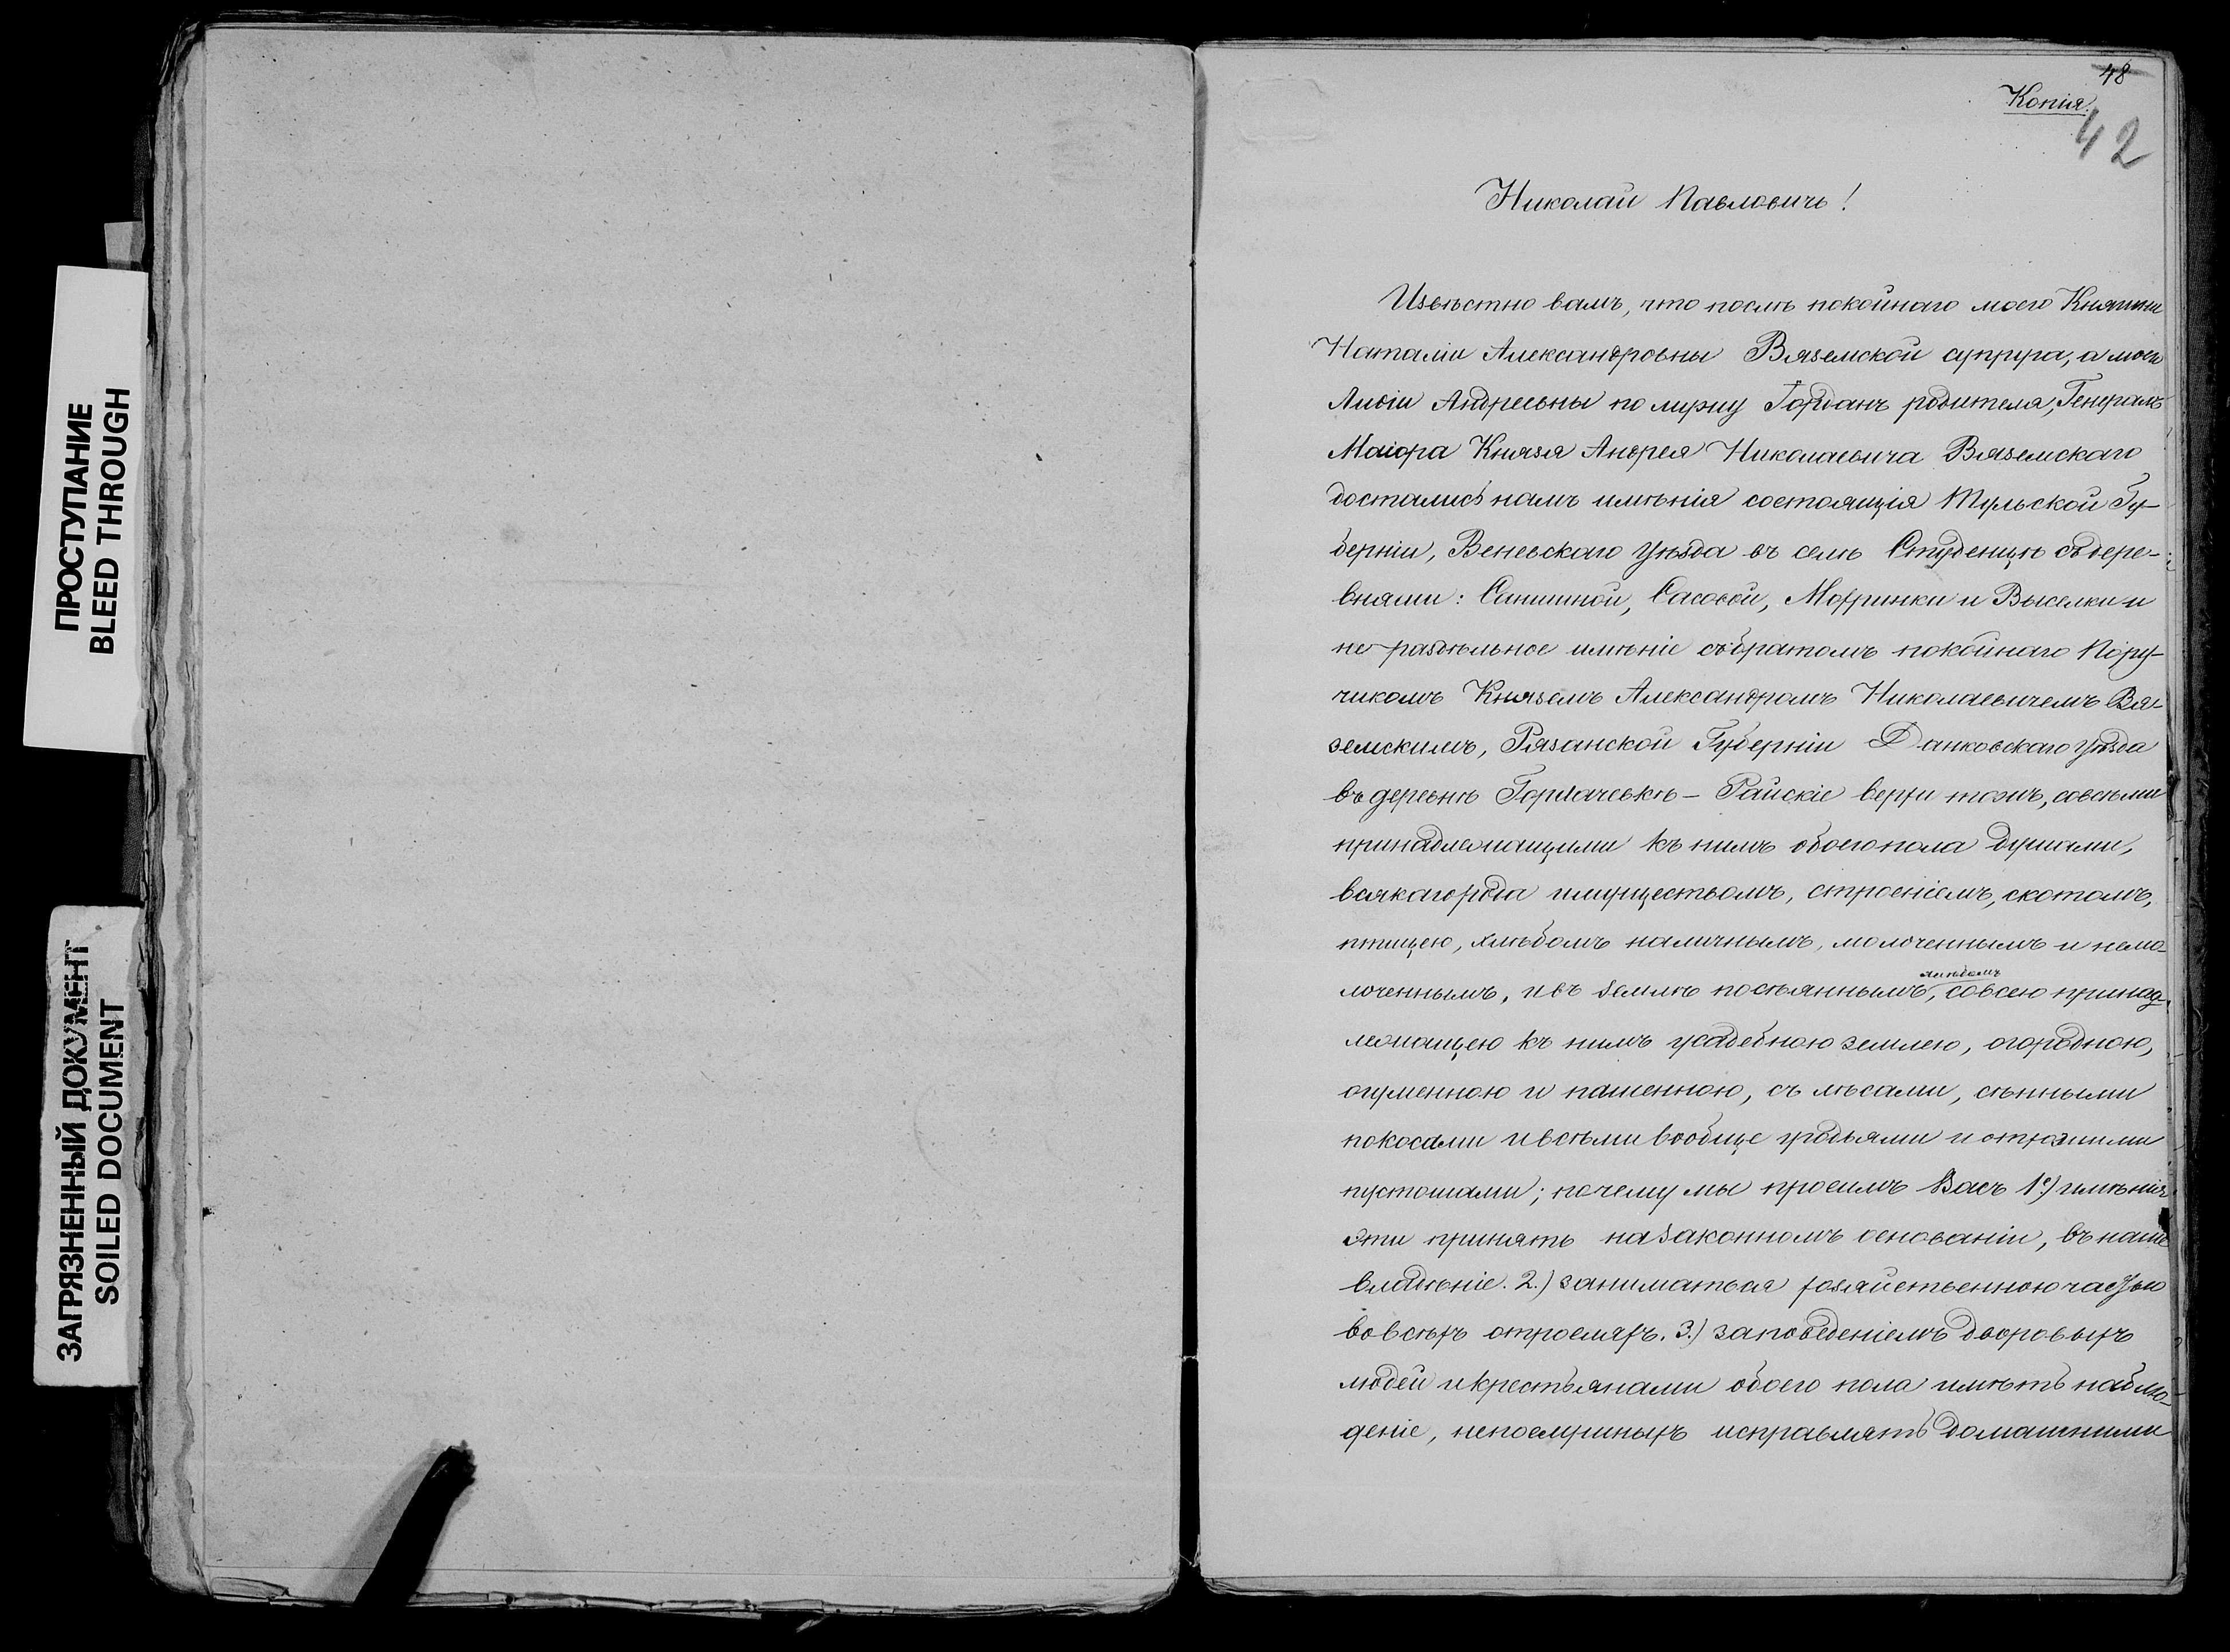 ПРОСТУПАНИЕ
BLEED THROUGH
ЗАГРЯЗНЕННЫЙ ДОКУМЕНТ
SOILED DOCUMENT
48
Копія.
42
Николай Павловичъ!
Извѣстно вамъ, что послѣ покойнаго моего Княгини
Наталіи Александровны Вяземской супруга, а моего
Лидіи Андреевны по мужу Горданъ родителя, Генералъ
Маіора Князя Андрея Николаевича Вяземскаго
достались намъ имѣнія состоящія Тульской Гу-
берніи, Веневскаго Уѣзда въ селѣ Студенцѣ съ дере-
внями: Саниной, Сасовой, Мохринки и Выселки и
не раздѣльное имѣніе съ братомъ покойнаго Пору-
чикомъ Княземъ Александромъ Николаевичемъ Вя-
земскимъ, Рязанской Губерніи Данковскаго Уѣзда
въ деревнѣ Горлачевкѣ – Райскіе верхи тожъ, со всѣми
принадлежащими къ нимъ обоего пола душами,
всякаго рода имуществомъ, строеніемъ, скотомъ,
птицею, хлѣбомъ наличнымъ, молоченнымъ и немо-
лоченнымъ, и въ землѣ посѣяннымъ хлѣбомъ, со всею принад-
лежащею къ нимъ усадебною землею, огородною,
огуменною и пашенною, съ лѣсами, сѣнными
покосами и всѣми вообще угодьями и отхожими
пустошами; почему мы просимъ Васъ 1е) имѣнія
эти принять на законномъ основаніи, въ наше
владѣніе. 2.) заниматься хозяйственною частью
во всѣхъ отрослях. 3.) за поведеніемъ дворовыхъ
людей и крестьянами обоего пола имѣть наблю-
деніе, непослушныхъ исправлять домашними